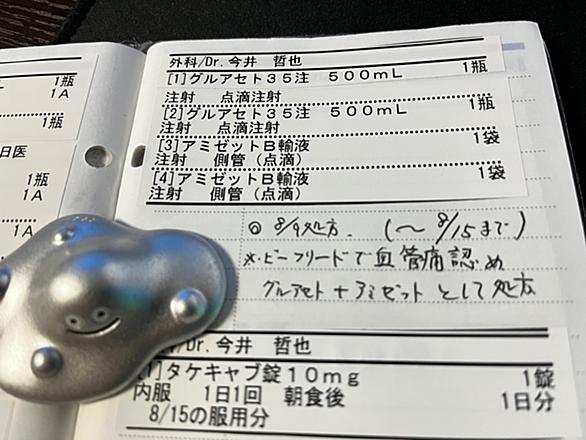 1瓶
1A
1瓶
日医
1瓶
1A
1
外科/Dr.今井 哲也
[1]グルアセト35注 500mL 1瓶
注射 点滴注射
[2]グルアセト35注 500mL 1瓶
注射 点滴注射
[3]アミゼットB輸液 1袋
注射 側管(点滴)
[4]アミゼットB輸液 1袋
注射 側管(点滴)
◎ 8/9処方. (〜8/15まで)
※・ビーフリードで血管痛認め
グルアセト+アミゼットとして処方
/Dr.今井 哲也
[1]タケキャブ錠10mg 1錠
内服 1日1回 朝食後 1日分
8/15の服用分